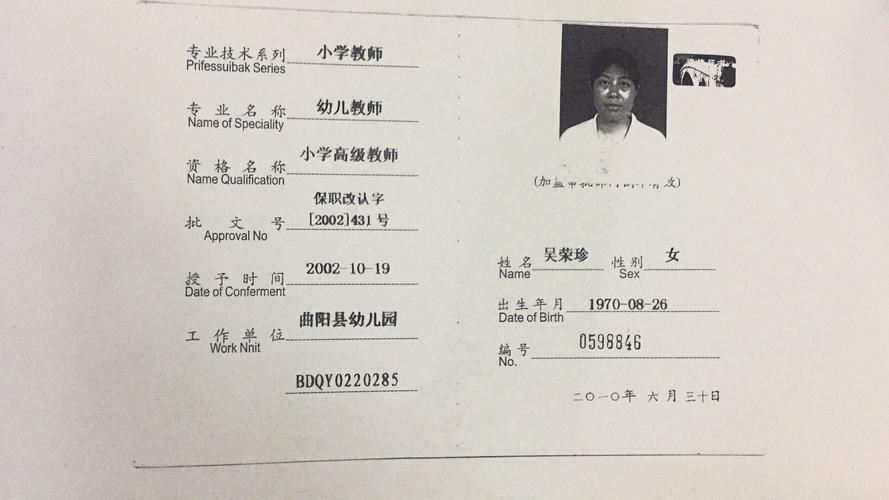 专业技术系列 小学教师
Prifessuibak Series
专业名称 幼儿教师
Name of Speciality
资格名称 小学高级教师
Name Qualification
保职改认字
批文号 [2002]431号
Approval No
授予时间 2002-10-19
Date of Conferment
工作单位 曲阳县幼儿园
Work Nnit
BDQY0220285
姓名 吴荣珍 性别 女
Name Sex
出生年月 1970-08-26
Date of Birth
编号 0598846
No.
二○一○年 六月 三十日